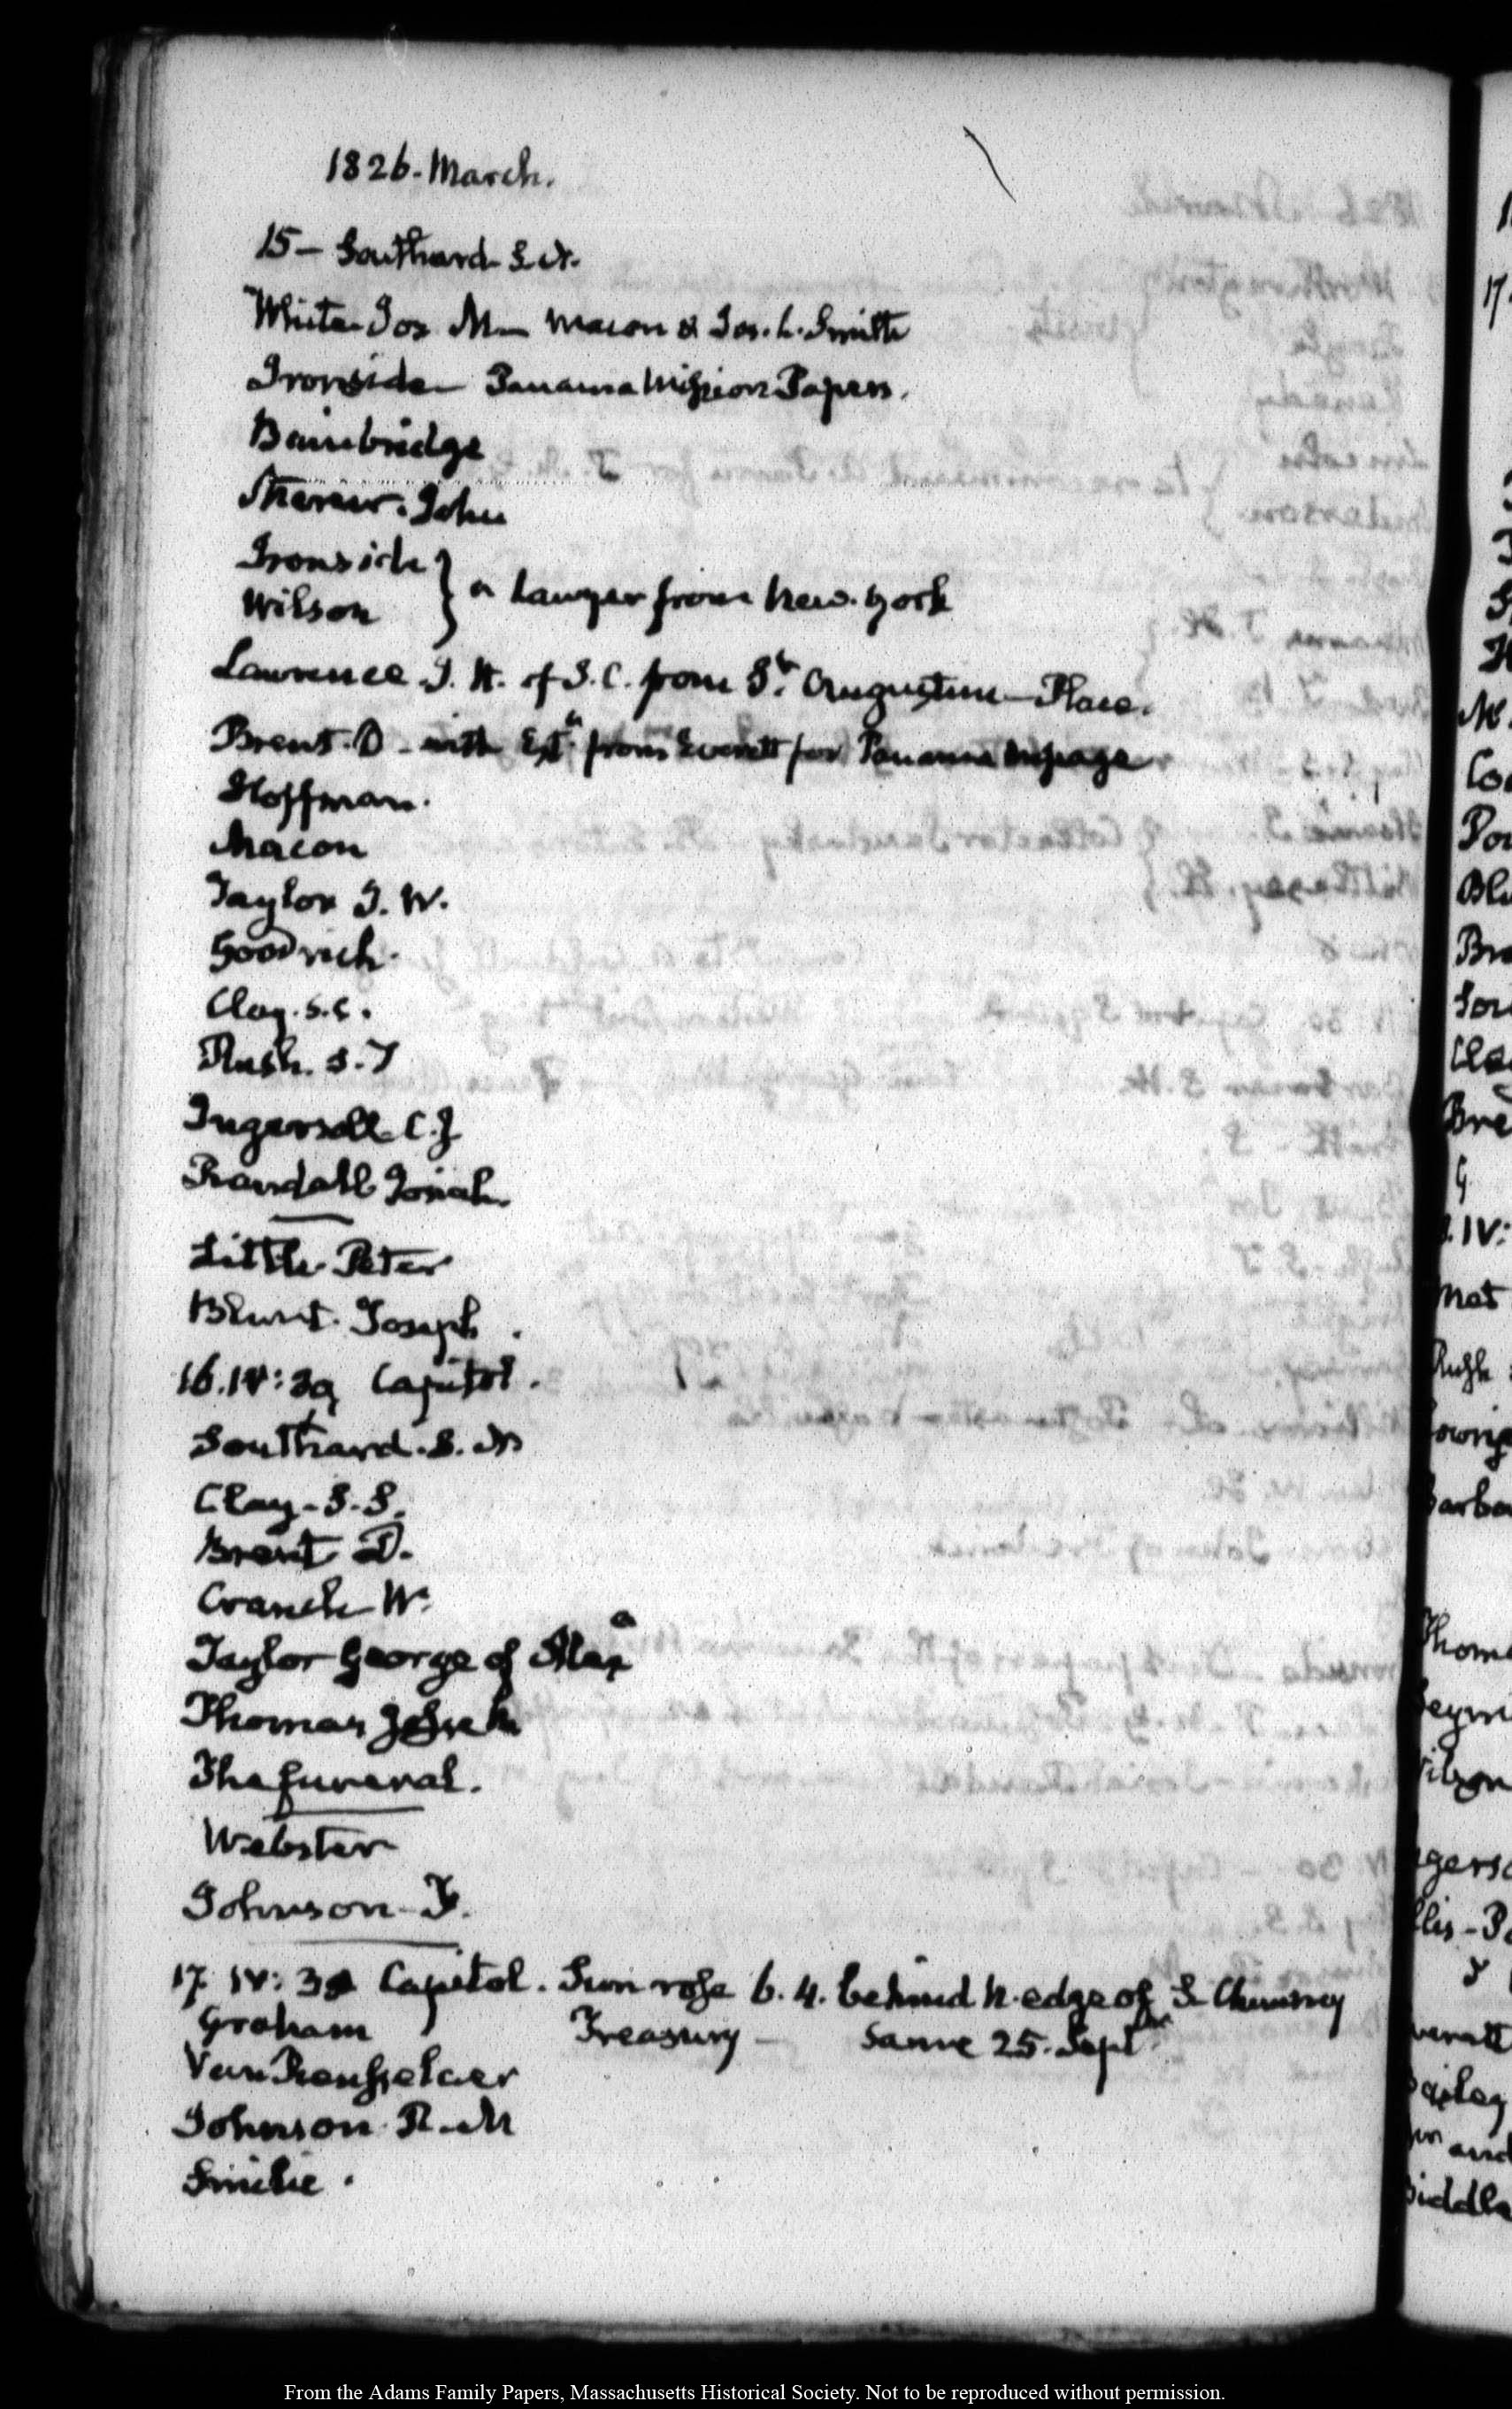 1826. March.
15 - Southard S. N.
White Jos M - Macon & Jos. L. Smith
Ironside - Panama Mission Papers.
Bainbridge
John
Ironside
Wilson } a Lawyer from New-York
Lawrence J. H. of S. C. from St. Augustine - Place.
Brent. D - with Extt. from Everett for Panama message
Hoffman.
Macon
Taylor J. W.
Goodrich.
Clay. S. S.
Rush. S. T
Ingersoll. C. J.
Randall Josiah.
Little Peter
Blunt. Joseph.
16. IV: 30 Capitol.
Southard. S. N
Clay - S. S.
Brent D.
Cranch W.
Taylor George of Alexa
Thomas
The funeral.
Webster
Johnson F.
17 IV: 30 Capitol. Sun rose 6. 4. behind N. edge of S. Chimney
Graham Treasury - Same 25. Septber
Van Rensselaer
Johnson R. M
Smilie.
17
From the Adams Family Papers, Massachusetts Historical Society. Not to be reproduced without permission.